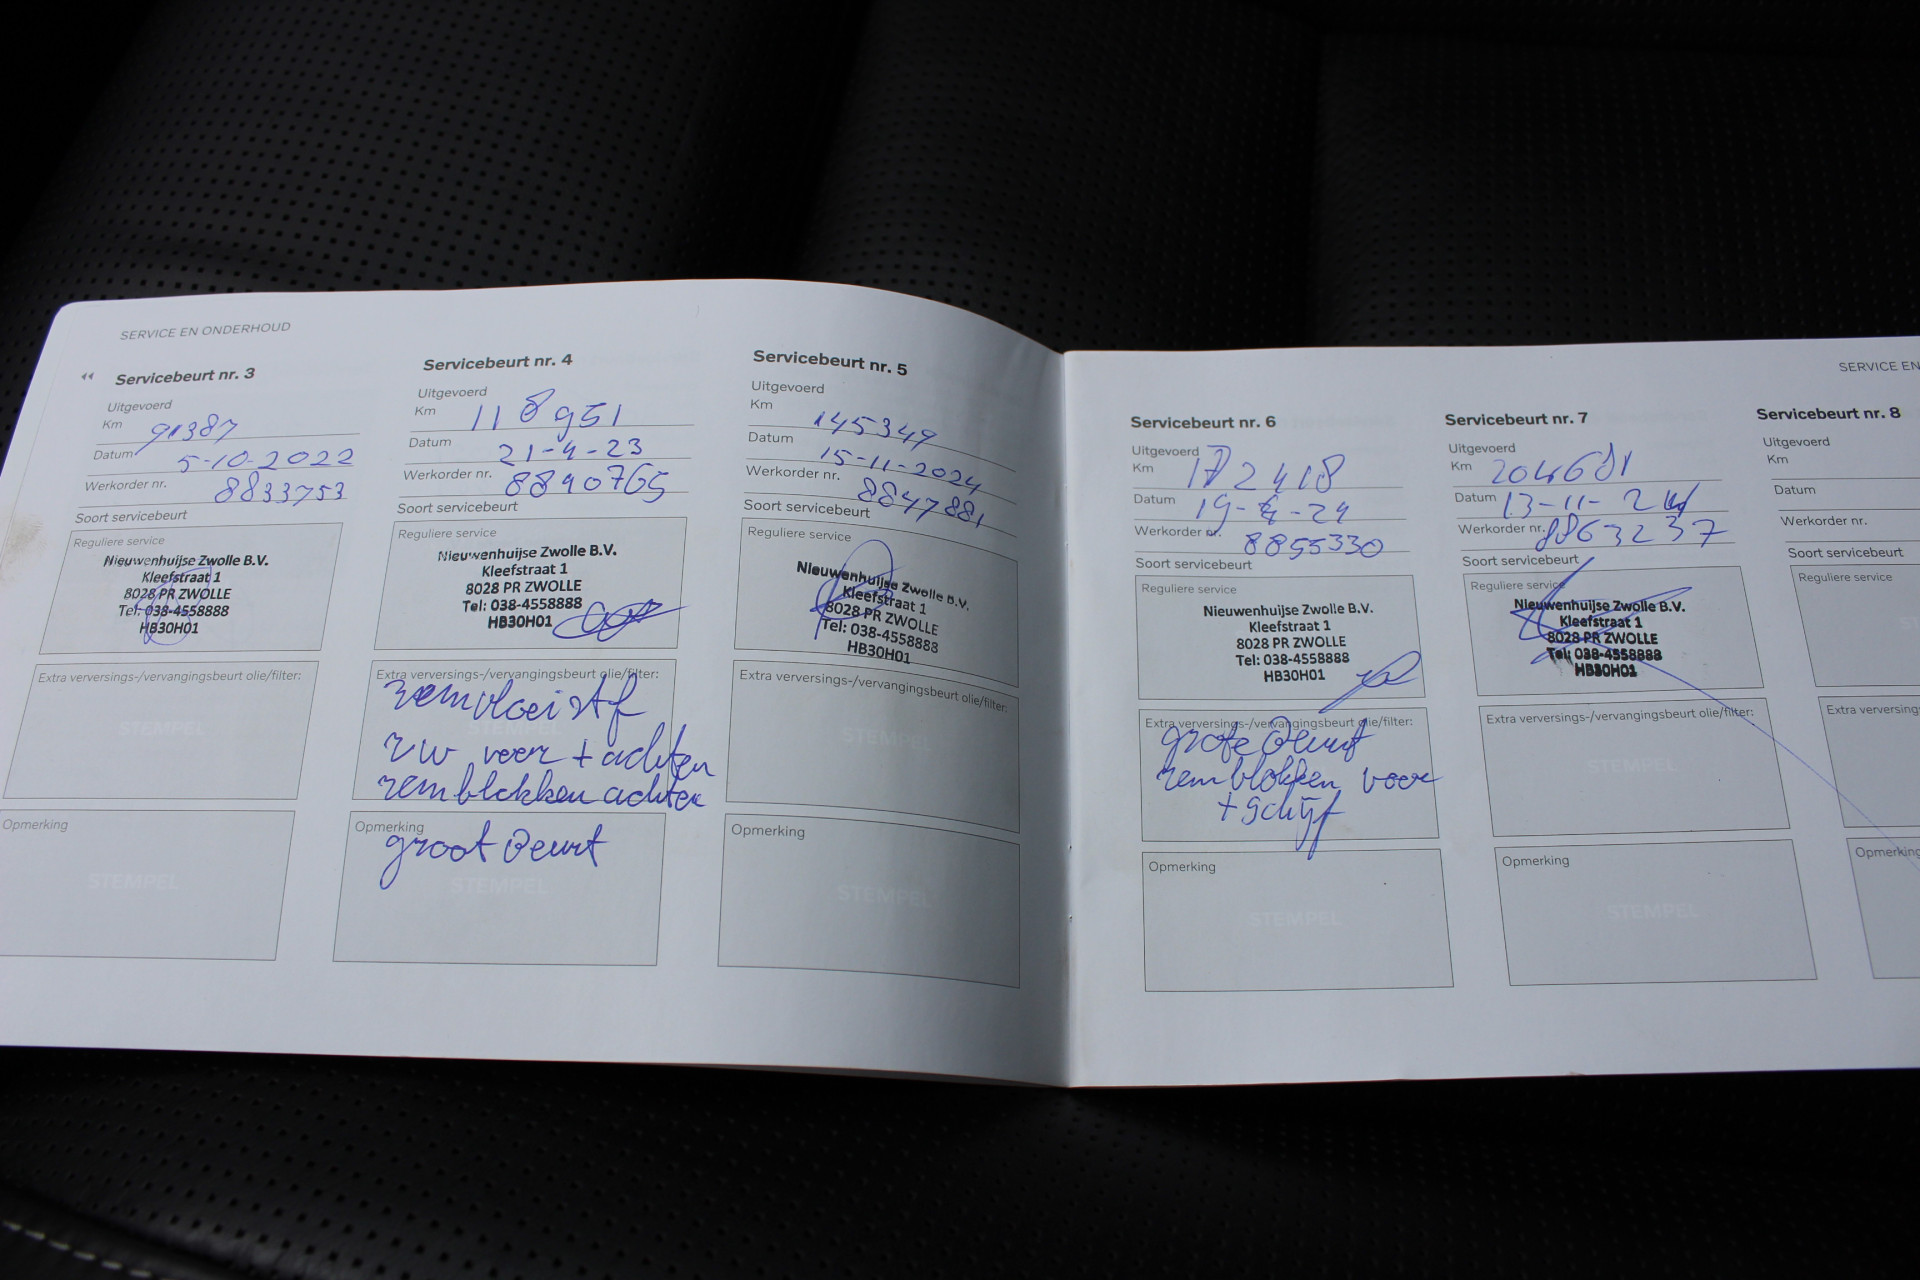 SERVICE EN ONDERHOUD
Servicebeurt nr. 3
Uitgevoerd
Km 91387
Datum 5-10-2022
Werkorder nr. 8833753
Soort servicebeurt
Reguliere service
Nieuwenhuijse Zwolle B.V.
Kleefstraat 1
8028 PR ZWOLLE
Tel: 038-4558888
HB30H01
Extra verversings-/vervangingsbeurt olie/filter:
STEMPEL
Opmerking
STEMPEL
Servicebeurt nr. 4
Uitgevoerd
Km 118951
Datum 21-4-23
Werkorder nr. 8840765
Soort servicebeurt
Reguliere service
Nieuwenhuijse Zwolle B.V.
Kleefstraat 1
8028 PR ZWOLLE
Tel: 038-4558888
HB30H01
Extra verversings-/vervangingsbeurt olie/filter:
remvloeistf
STEMPEL
rw voor + achter
remblokken achter
Opmerking
groot beurt
STEMPEL
Servicebeurt nr. 5
Uitgevoerd
Km 145349
Datum 15-11-2024
Werkorder nr. 8847881
Soort servicebeurt
Reguliere service
Nieuwenhuijse Zwolle B.V.
Kleefstraat 1
8028 PR ZWOLLE
Tel: 038-4558888
HB30H01
Extra verversings-/vervangingsbeurt olie/filter:
STEMPEL
Opmerking
STEMPEL
SERVICE EN
Servicebeurt nr. 6
Uitgevoerd
Km 172418
Datum 19-4-24
Werkorder nr. 8855330
Soort servicebeurt
Reguliere service
Nieuwenhuijse Zwolle B.V.
Kleefstraat 1
8028 PR ZWOLLE
Tel: 038-4558888
HB30H01
Extra verversings-/vervangingsbeurt olie/filter:
grote beurt
remblokken voor
+ schijf
Opmerking
STEMPEL
Servicebeurt nr. 7
Uitgevoerd
Km 204681
Datum 13-11-24
Werkorder nr. 8863237
Soort servicebeurt
Reguliere service
Nieuwenhuijse Zwolle B.V.
Kleefstraat 1
8028 PR ZWOLLE
Tel: 038-4558888
HB30H01
Extra verversings-/vervangingsbeurt olie/filter:
STEMPEL
Opmerking
STEMPEL
Servicebeurt nr. 8
Uitgevoerd
Km
Datum
Werkorder nr.
Soort servicebeurt
Reguliere service
Extra verversings
Opmerking